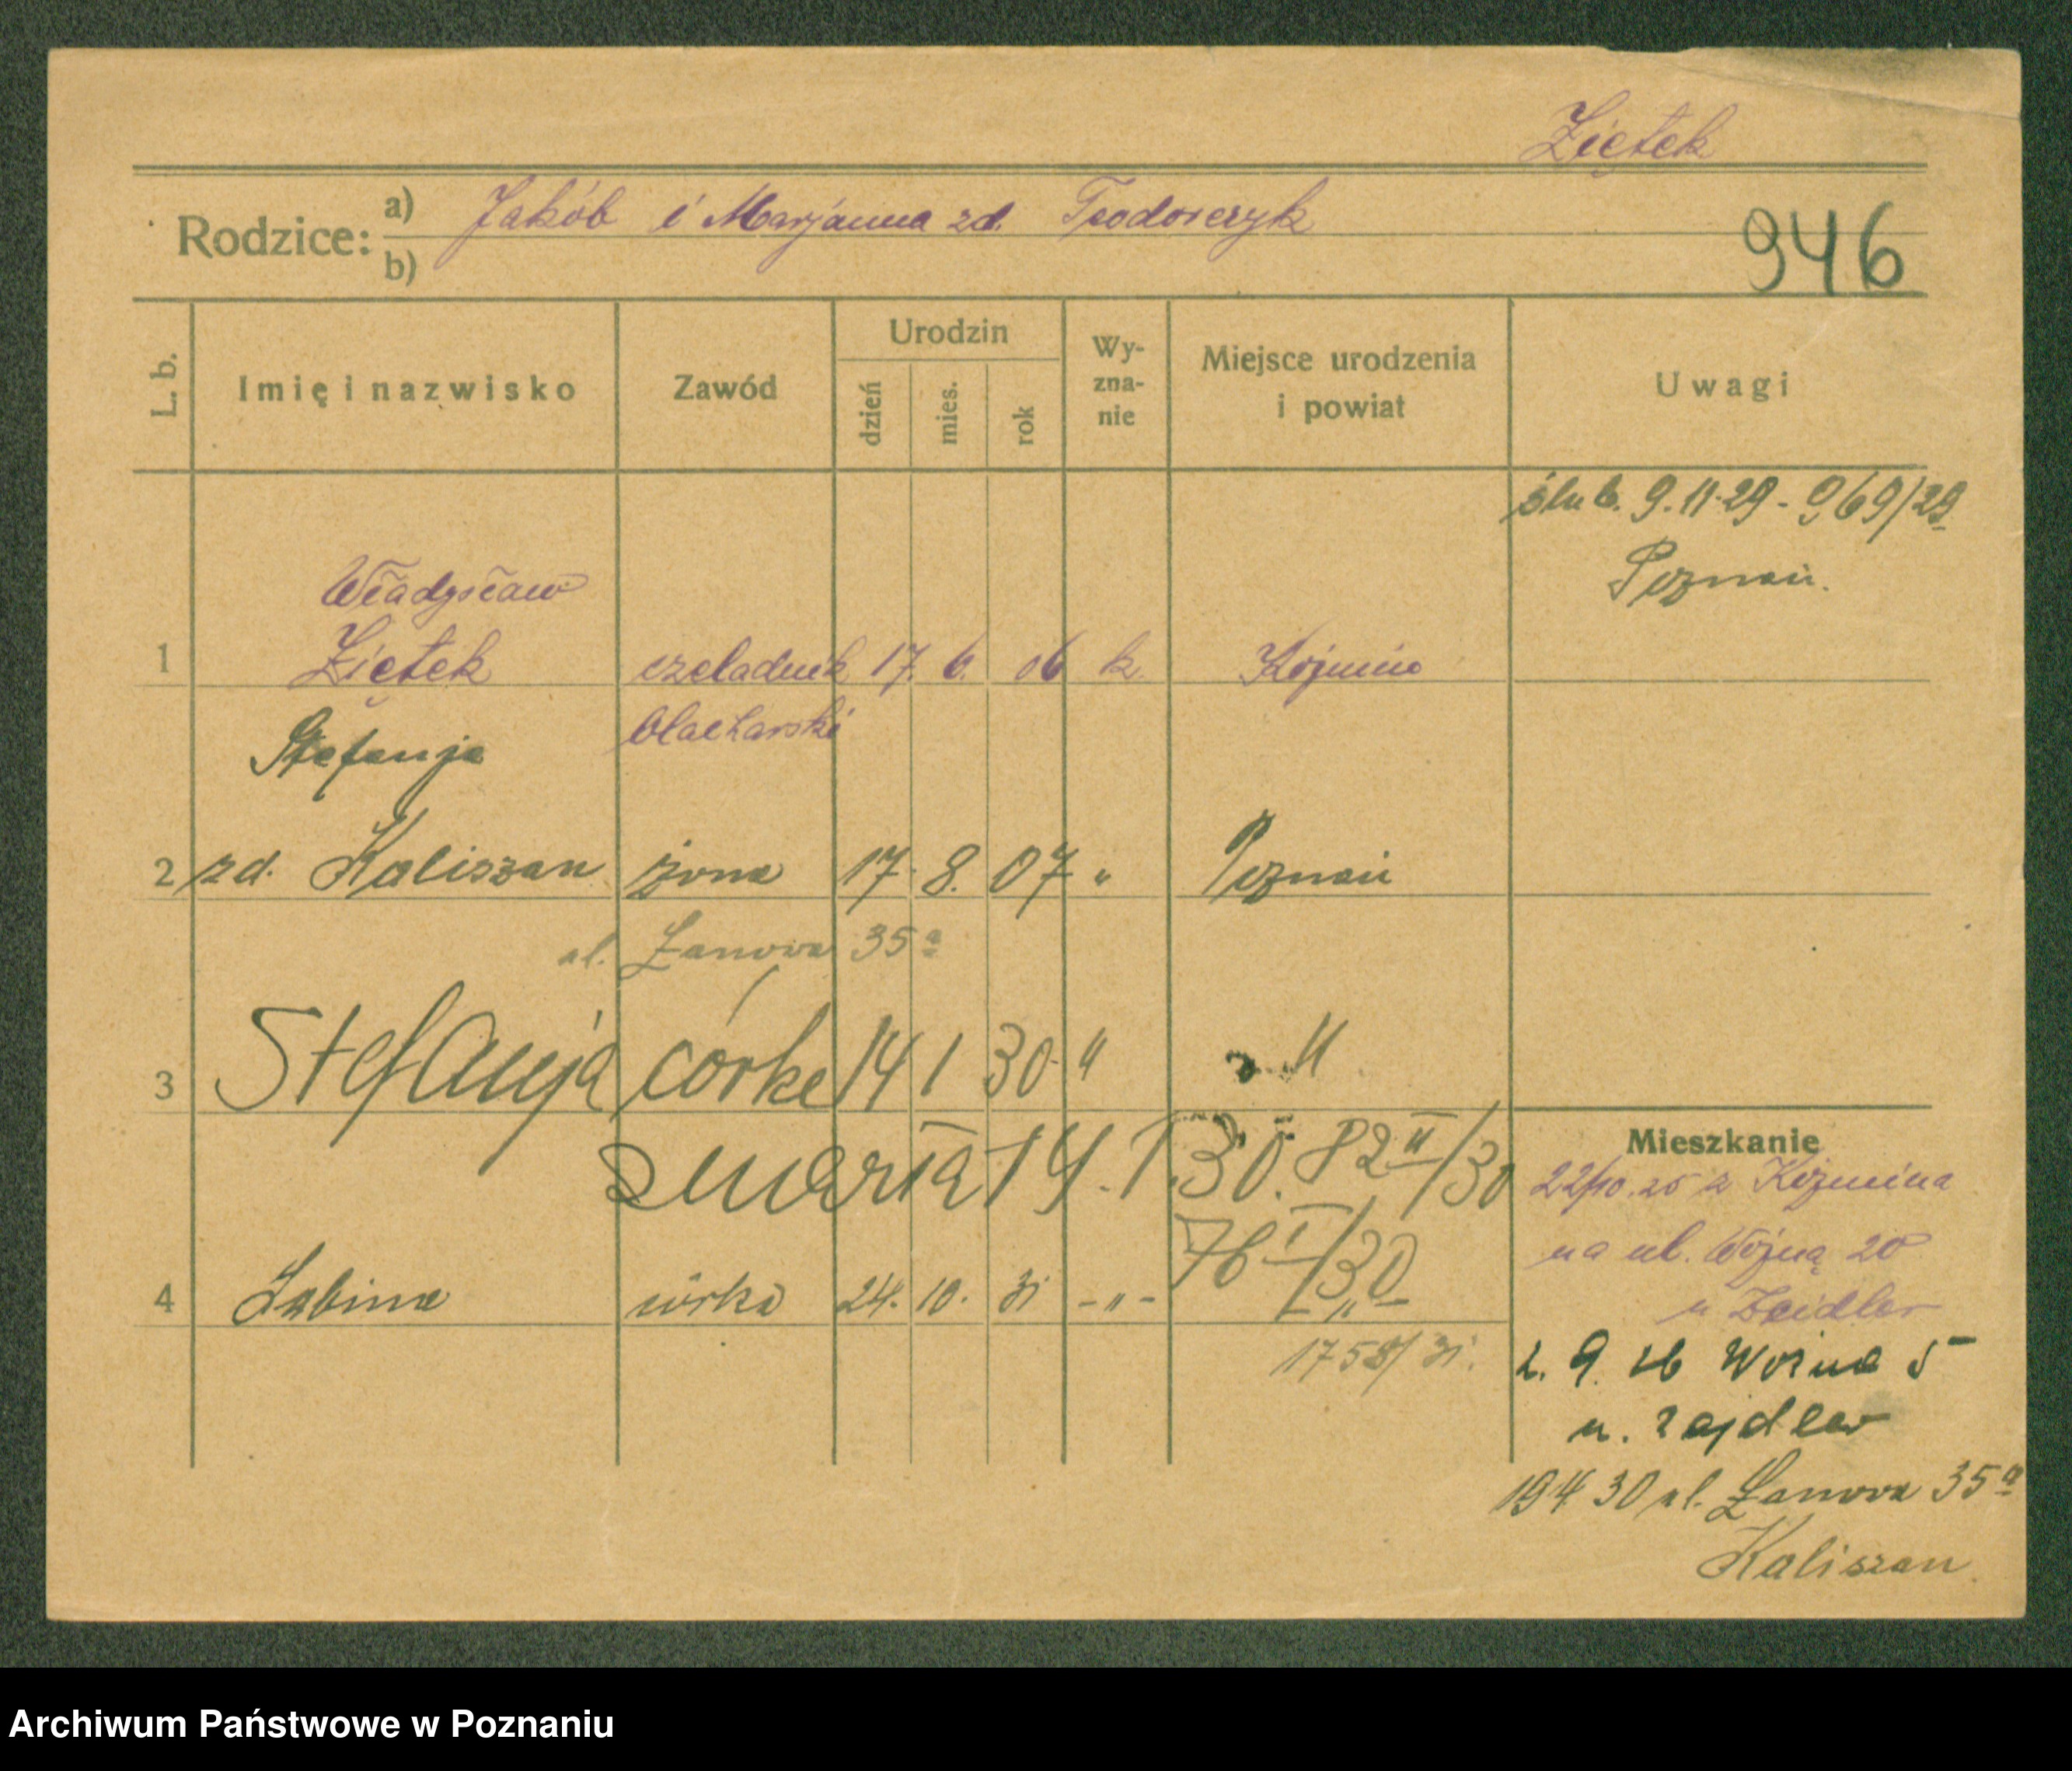 Ziętek
Rodzice: a) Jakób i Marjanna zd. Teodorczyk
b)
946
L. b.
Imię i nazwisko
Zawód
Urodzin
dzień
mies.
rok
Wy-
zna-
nie
Miejsce urodzenia
i powiat
Uwagi
ślub. 9.11.29 - 969/29
Poznań.
Władysław
1 Ziętek czeladnik 17. 6. 06 k. Koźmin
blacharski
Stefanja
2 zd. Kaliszan żona 17. 8. 07 " Poznań
ul. Łanowa 35a
3 Stefanja córka 14 1 30 " "
zmarła 14. 1. 30. 82 II/30
76 I/30
4 Sabina córka 24. 10. 31 - " - - " -
1758/31.
Mieszkanie
22/10.25 z Koźmina
na ul. Woźną 20
u Zeidler
2. 9. 26 Woźna 5
u. Zajdler
19 4 30 ul. Łanowa 35a
Kaliszan.
Archiwum Państwowe w Poznaniu